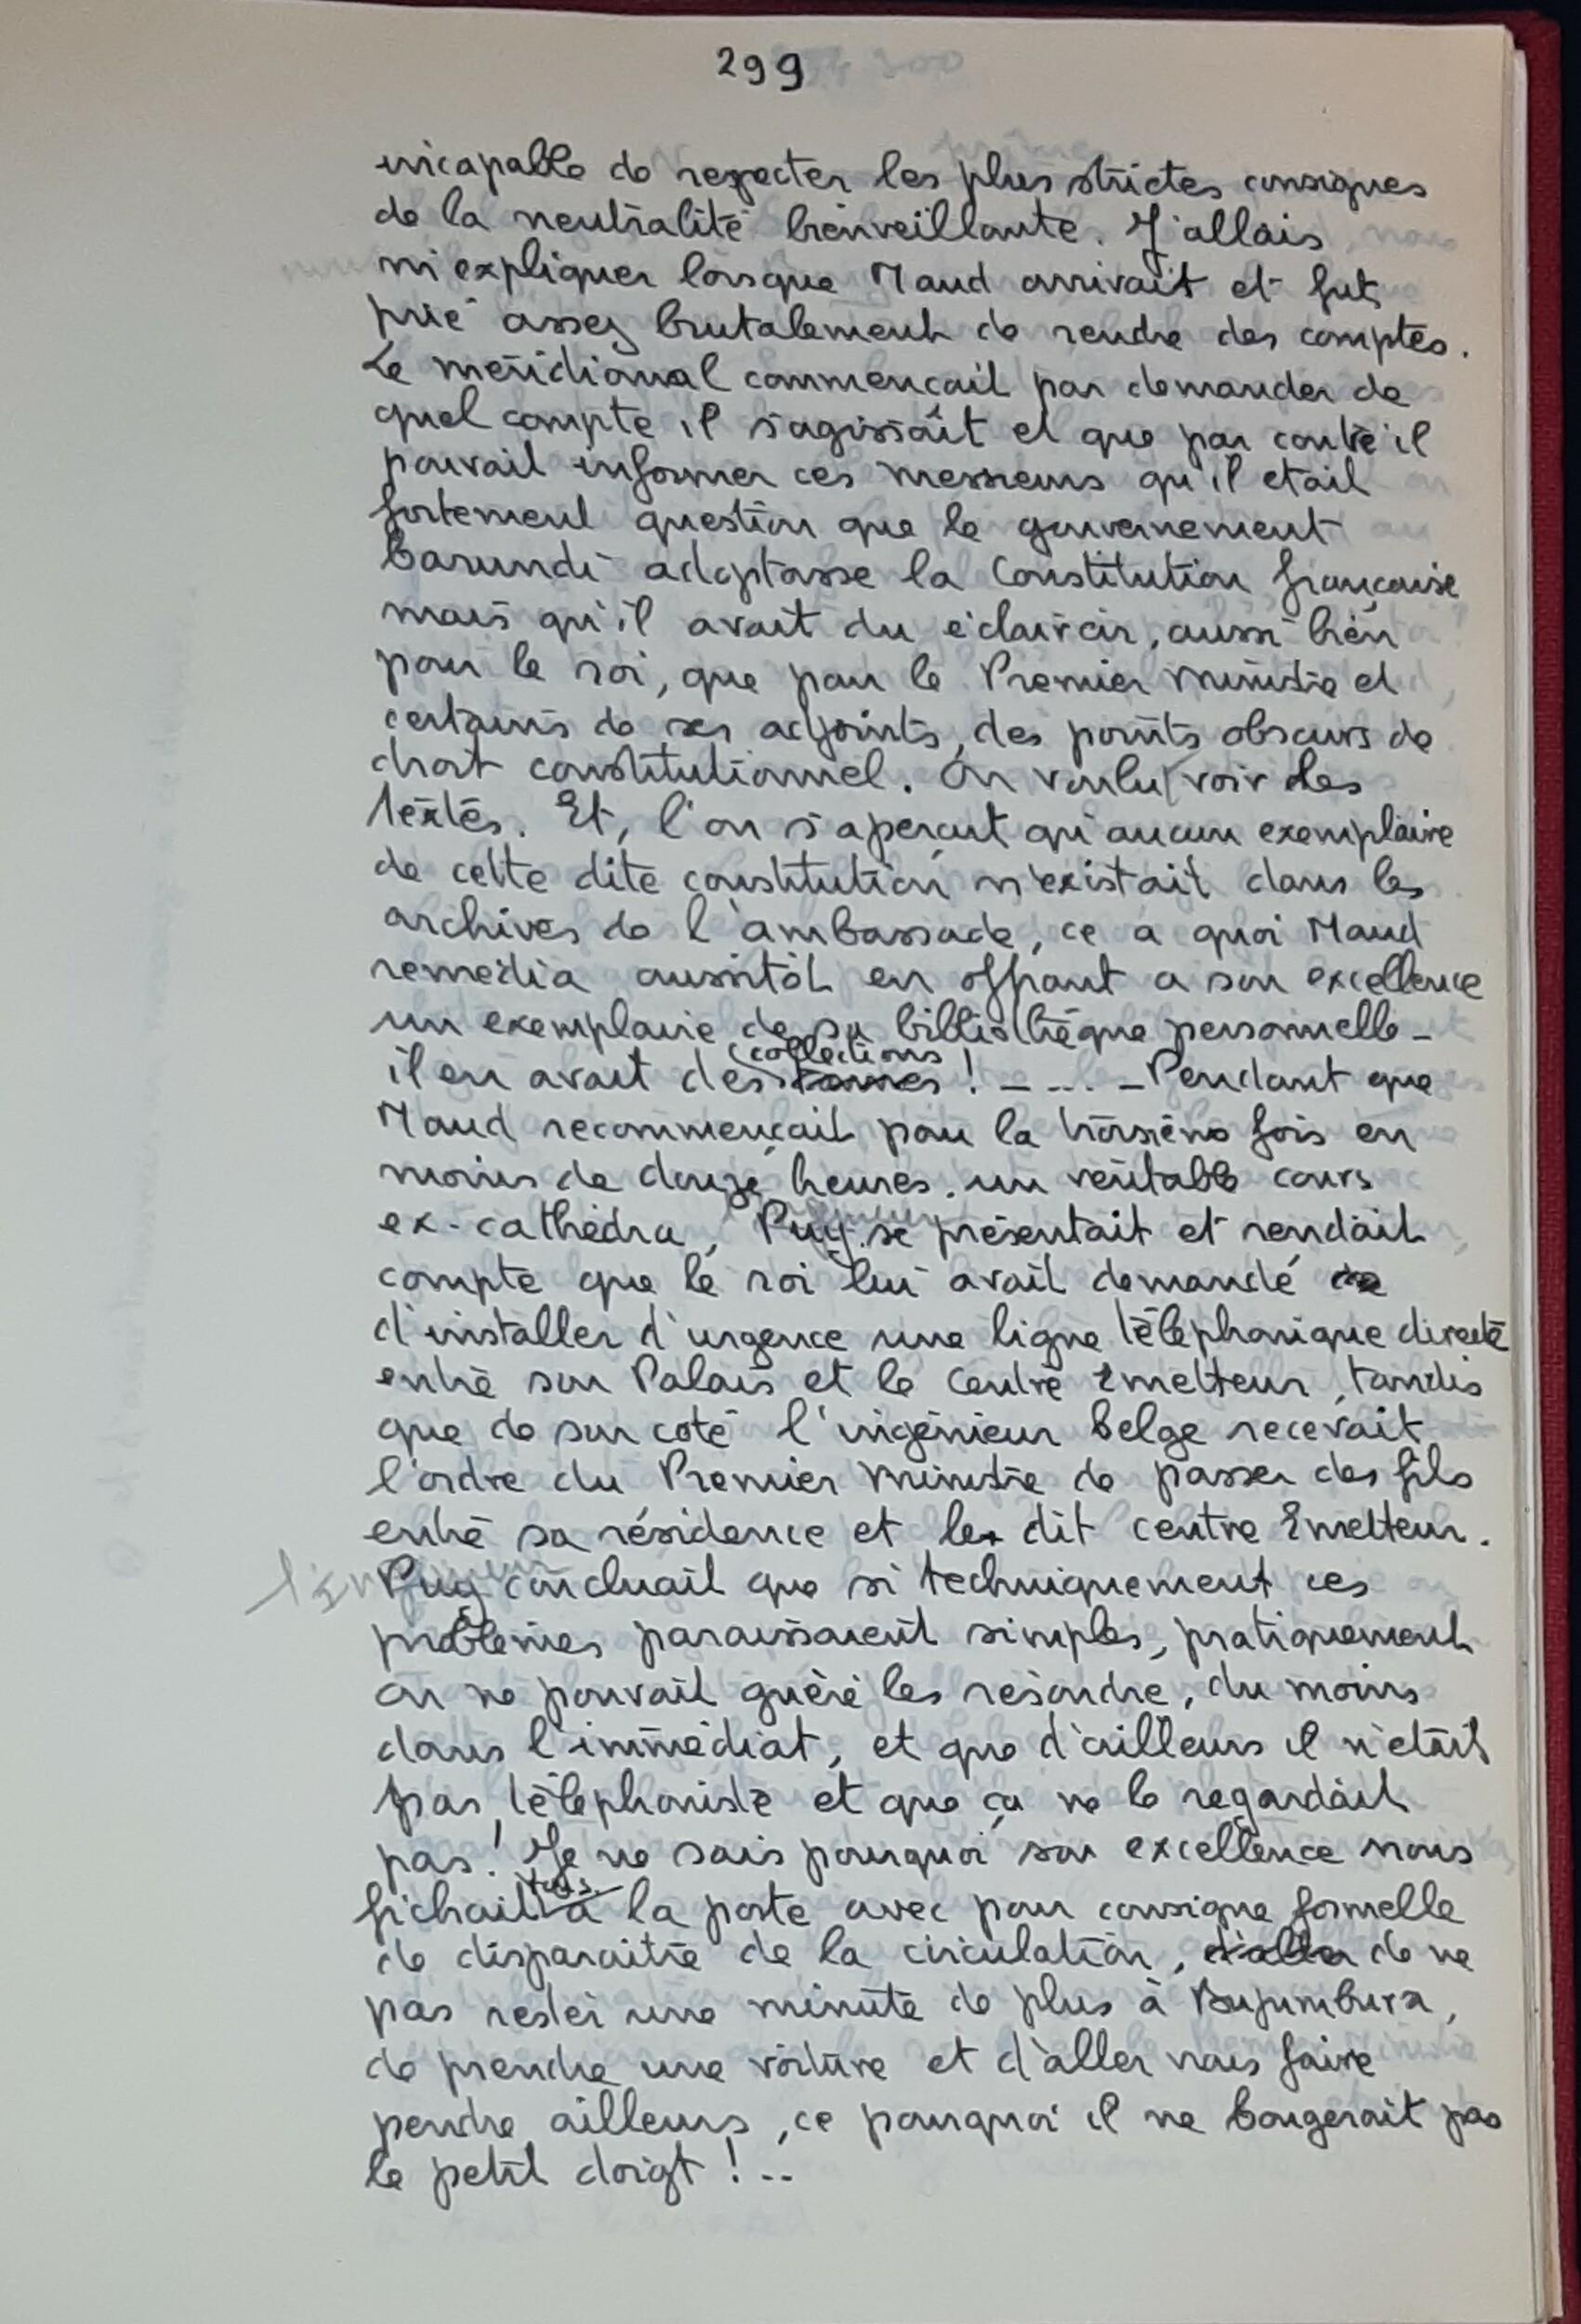 299
incapable de respecter les plus strictes consignes
de la neutralité bienveillante. J'allais
m'expliquer lorsque Maud arrivait et fut
prié assez brutalement de rendre des comptes.
Le méridional commençait par demander de
quel compte il s'agissait et que par contre il
pouvait informer ces messieurs qu'il etait
fortement question que le gouvernement
barundi adoptasse la Constitution française
mais qu'il avait du éclaircir, aussi bien
pour le roi, que pour le Premier Ministre et
certains de ses adjoints, des points obscurs de
droit constitutionnel. On voulu voir les
textes. Et, l'on s'aperçut qu'aucun exemplaire
de cette dite constitution n'existait dans les
archives de l'ambassade, ce à quoi Maud
remédia aussitôt en offrant a son excellence
un exemplaire de sa bibliothèque personnelle -
il en avait des collections ! - ... - Pendant que
Maud recommençait pour la troisième fois en
moins de douze heures. un véritable cours
ex-cathédra, Puy se présentait et rendait
compte que le roi lui avait demandé
d'installer d'urgence une ligne téléphonique directe
entre son Palais et le Centre Emetteur, tandis
que de son coté l'ingénieur belge recevait
l'ordre du Premier Ministre de passer des fils
entre sa résidence et le dit centre Emetteur.
Puy concluait que si techniquement ces
problèmes paraissaient simples, pratiquement
on ne pouvait guère les résoudre, du moins
dans l'immédiat, et que d'ailleurs il n'était
pas téléphoniste et que ça ne le regardait
pas! Je ne sais pourquoi son excellence nous
fichait tous à la porte avec pour consigne formelle
de disparaitre de la circulation, d'aller de ne
pas rester une minute de plus à Bujumbura,
de prendre une voiture et d'aller nous faire
pendre ailleurs, ce pourquoi il ne bougerait pas
le petit doigt ! ..